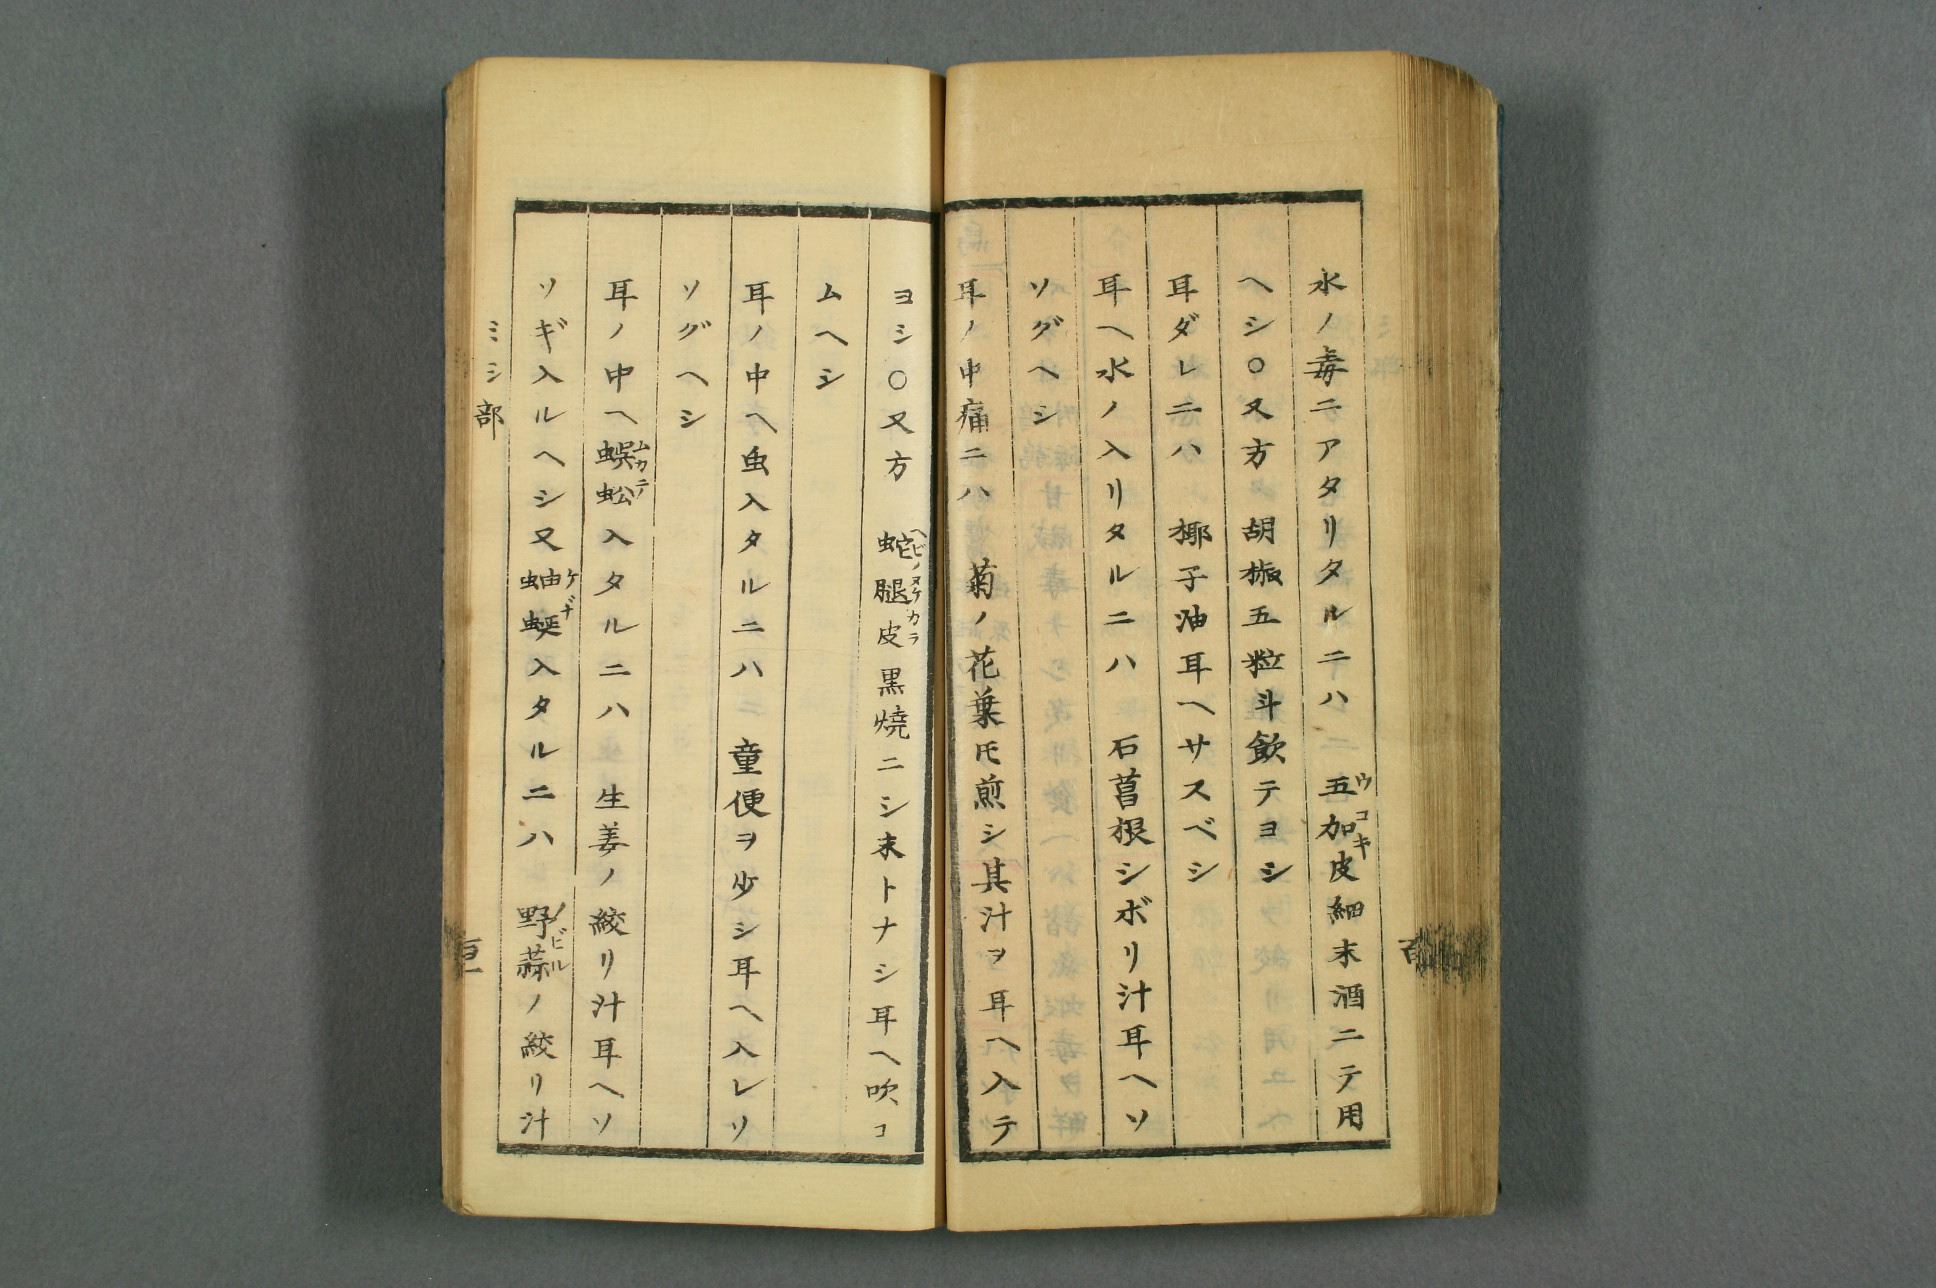 水ノ毒ニアタリタルニハ 五加皮細末酒ニテ用
ウコキ
ヘシ○又方 胡椒五粒斗飲テヨシ
耳ダレニハ 椰子油耳ヘサスベシ
耳ヘ水ノ入リタルニハ 石菖根シボリ汁耳ヘソ
ソグヘシ
耳ノ中痛ニハ 菊ノ花葉𪜈煎シ其汁ヲ耳ヘ入テ
ヨシ○又方 蛇腿皮黒焼ニシ末トナシ耳ヘ吹コ
ヘビノヌケカラ
ムヘシ
耳ノ中ヘ虫入タルニハ 童便ヲ少シ耳ヘ入レソ
ソグヘシ
耳ノ中ヘ蜈蚣入タルニハ 生姜ノ絞リ汁耳ヘソ
ムカテ
ソギ入ルヘシ又蚰蜒入タルニハ 野蒜ノ絞リ汁
ケヂ
ノビル
ミシ部